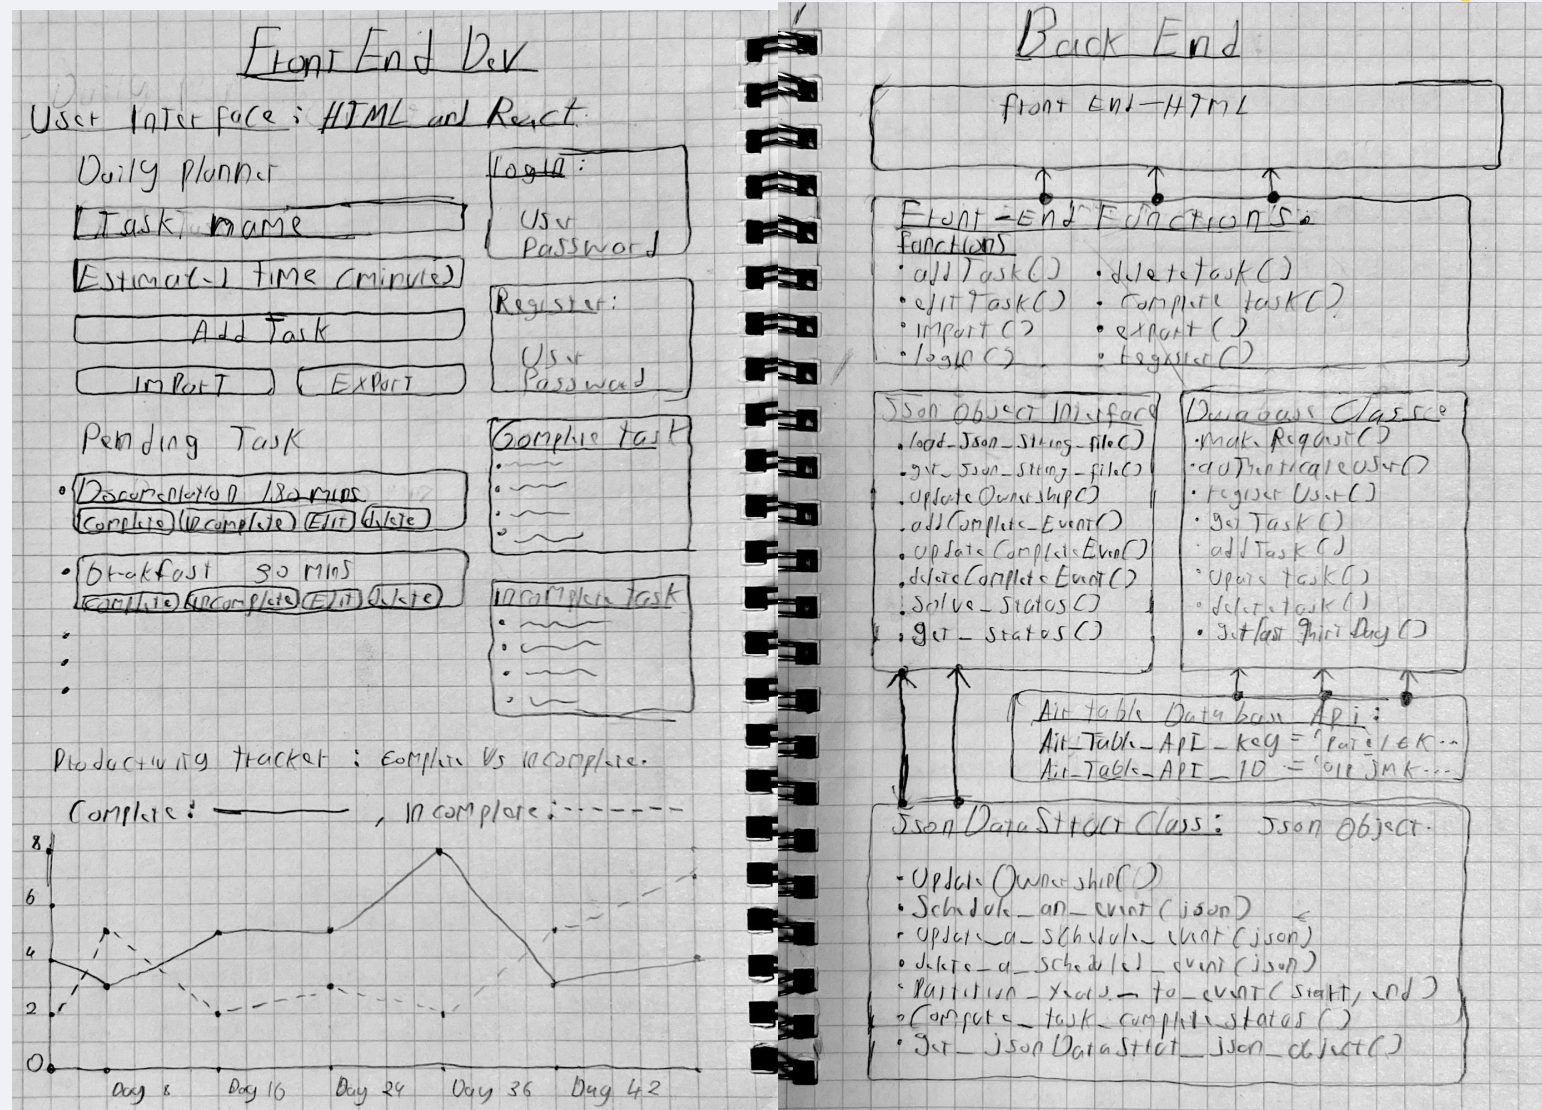 Front End Dev
User Interface: HTML and React
Daily planner
Task name
Estimated time (minute)
Add Task
Import
Export
Login:
User
Password
Register:
User
Password
Pending Task
Documentation 180 mins
Complete
incomplete
Edit
delete
breakfast 30 mins
Complete
incomplete
Edit
delete
Complete task
incomplete task
Productivity tracker : Complete Vs incomplete.
Complete: , Incomplete:
8
6
4
2
0
Day 8
Day 16
Day 24
Day 36
Day 42
Back End
front End-HTML
Front-End Function's.
functions
• addTask()
• deletetask()
• editTask()
• Complete task()
• import()
• export()
• login()
• register()
Json Object Interface
• load_Json_String_file()
• get_Json_String_file()
• UpdateOwnership()
• addComplete_Event()
• updateCompleteEven()
• deleteCompleteEvent()
• Solve_Status()
• get_status()
Database
• Make Request()
• authenticateUser()
• register User()
• get Task()
• addTask()
• task()
• deletetask()
• Day()
Air table Database Api:
Air_Table_API_key =
Air_Table_API_ID =
Json Data Struct Class: Json Object.
• Update Ownership()
• Schedule_an_event(json)
• update_a_schedule_event(json)
• delete_a_scheduled_event(json)
• Partition_ _to_event(start, end)
• Compute_task_complete_status()
• get_jsonDataStrict_json_object()